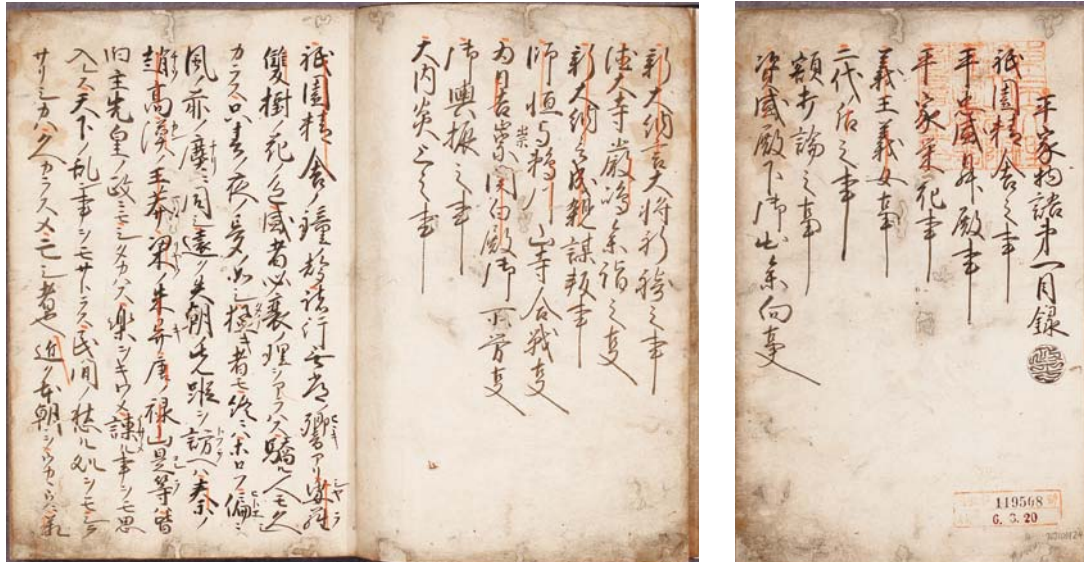 平家物語第一目録
祇園精舎之事
平忠盛昇殿事
平家栄花事
義王義女事
二代后之事
額打論之事
資盛殿下御出参向事
119568
6. 3. 20
新大納言大将祈祷之事
徳大寺厳嶋参詣之事
新大納言成親謀叛事
師恒与鵜川山寺合戦事
為日吉崇関白殿御所労事
御輿振之事
大内炎上之事
祇園精舎ノ鐘声諸行無常響アリ沙羅
双樹ノ花ノ色盛者必衰ノ理ヲアラハス驕ル人モ久
カラス只春ノ夜ノ夢ノ如シ猛キ者モ終ニハホロフ偏ニ
風ノ前ノ塵ニ同シ遠ク異朝先蹤ヲ訪ヘハ秦ノ
趙高漢ノ王莽梁ノ朱异唐ノ禄山是等皆
旧主先皇ノ政ニモシタカハス楽ヲキワメ諫ル事ヲモ思
入レス天下ノ乱事ヲモサトラス民間ノ愁ル処ヲモシラ
サリシカハ久カラスメ亡シ者也近ク本朝ヲウカカウニ承